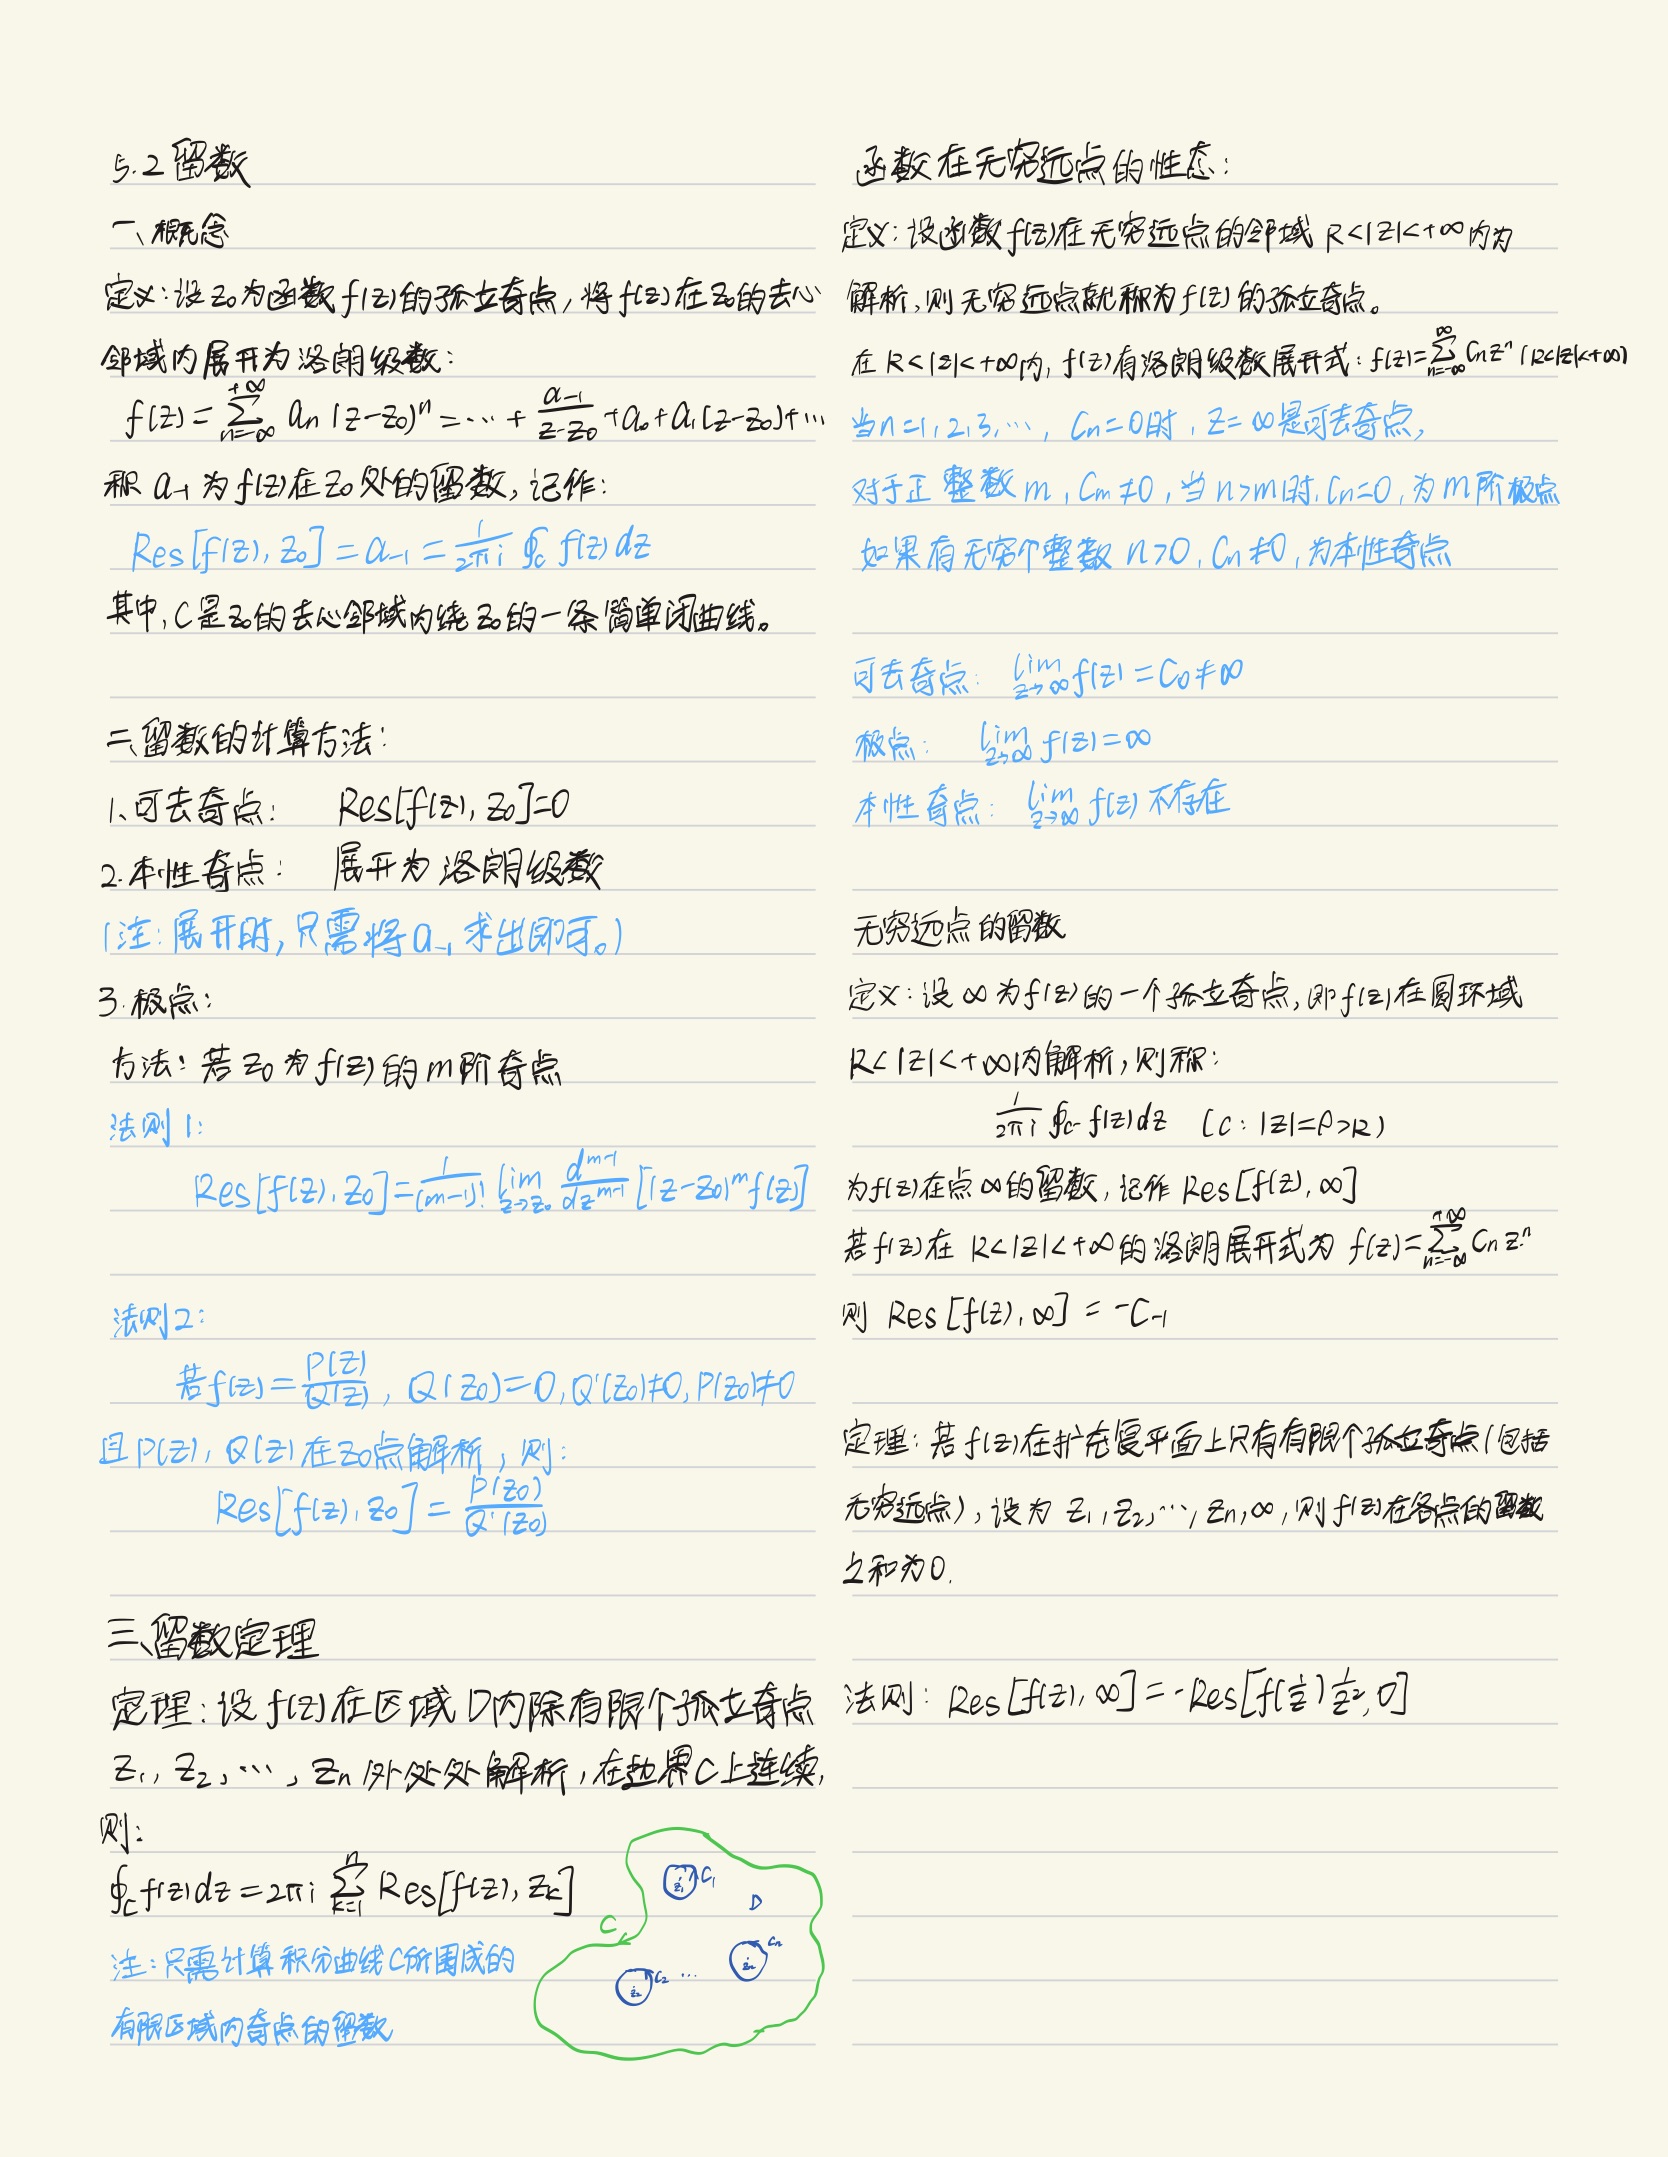 5.2 留数
一、概念
定义：设z₀为函数f(z)的孤立奇点，将f(z)在z₀的去心
邻域内展开为洛朗级数：
f(z) = ∑_{n=-∞}^{+∞} aₙ(z-z₀)ⁿ = ⋯ + a₋₁/(z-z₀) + a₀ + a₁(z-z₀) + ⋯
称 a₋₁ 为f(z)在z₀处的留数，记作：
Res[f(z), z₀] = a₋₁ = 1/(2πi) ∮_C f(z)dz
其中，C是z₀的去心邻域内绕z₀的一条简单闭曲线。
二、留数的计算方法：
1、可去奇点： Res[f(z), z₀]=0
2. 本性奇点： 展开为洛朗级数
(注：展开时，只需将a₋₁求出即可。)
3. 极点：
方法：若z₀为f(z)的m阶奇点
法则1：
Res[f(z), z₀] = 1/(m-1)! lim_{z→z₀} d^{m-1}/dz^{m-1} [(z-z₀)^m f(z)]
法则2：
若f(z) = P(z)/Q(z), Q(z₀)=0, Q'(z₀)≠0, P(z₀)≠0
且P(z), Q(z)在z₀点解析，则：
Res[f(z), z₀] = P(z₀)/Q'(z₀)
三、留数定理
定理：设f(z)在区域D内除有限个孤立奇点
z₁, z₂, ⋯, zₙ外处处解析，在边界C上连续，
则：
∮_C f(z)dz = 2πi ∑_{k=1}^{n} Res[f(z), z_k]
注：只需计算积分曲线C所围成的
有限区域内奇点的留数
C
z₁ C₁
D
zₙ Cₙ
z₂ C₂ ⋯
函数在无穷远点的性态：
定义：设函数f(z)在无穷远点的邻域 R<|z|<+∞内为
解析，则无穷远点就称为f(z)的孤立奇点。
在R<|z|<+∞内, f(z)有洛朗级数展开式：f(z)=∑_{n=-∞}^{∞} Cₙzⁿ (R<|z|<+∞)
当n=1,2,3,⋯, Cₙ=0时, z=∞是可去奇点,
对于正整数m, Cm≠0, 当n>m时, Cₙ=0, 为m阶极点
如果有无穷个整数n>0, Cₙ≠0, 为本性奇点
可去奇点： lim_{z→∞} f(z) = C₀ ≠ ∞
极点： lim_{z→∞} f(z) = ∞
本性奇点： lim_{z→∞} f(z) 不存在
无穷远点的留数
定义：设∞为f(z)的一个孤立奇点, 即f(z)在圆环域
R<|z|<+∞内解析, 则称：
1/(2πi) ∮_{C⁻} f(z)dz (C: |z|=ρ>R)
为f(z)在点∞的留数, 记作 Res[f(z), ∞]
若f(z)在 R<|z|<+∞的洛朗展开式为 f(z)=∑_{n=-∞}^{+∞} Cₙzⁿ
则 Res[f(z), ∞] = -C₋₁
定理：若f(z)在扩充复平面上只有有限个孤立奇点(包括
无穷远点), 设为 z₁, z₂, ⋯, zₙ, ∞, 则f(z)在各点的留数
之和为0.
法则： Res[f(z), ∞] = -Res[f(1/z) 1/z², 0]